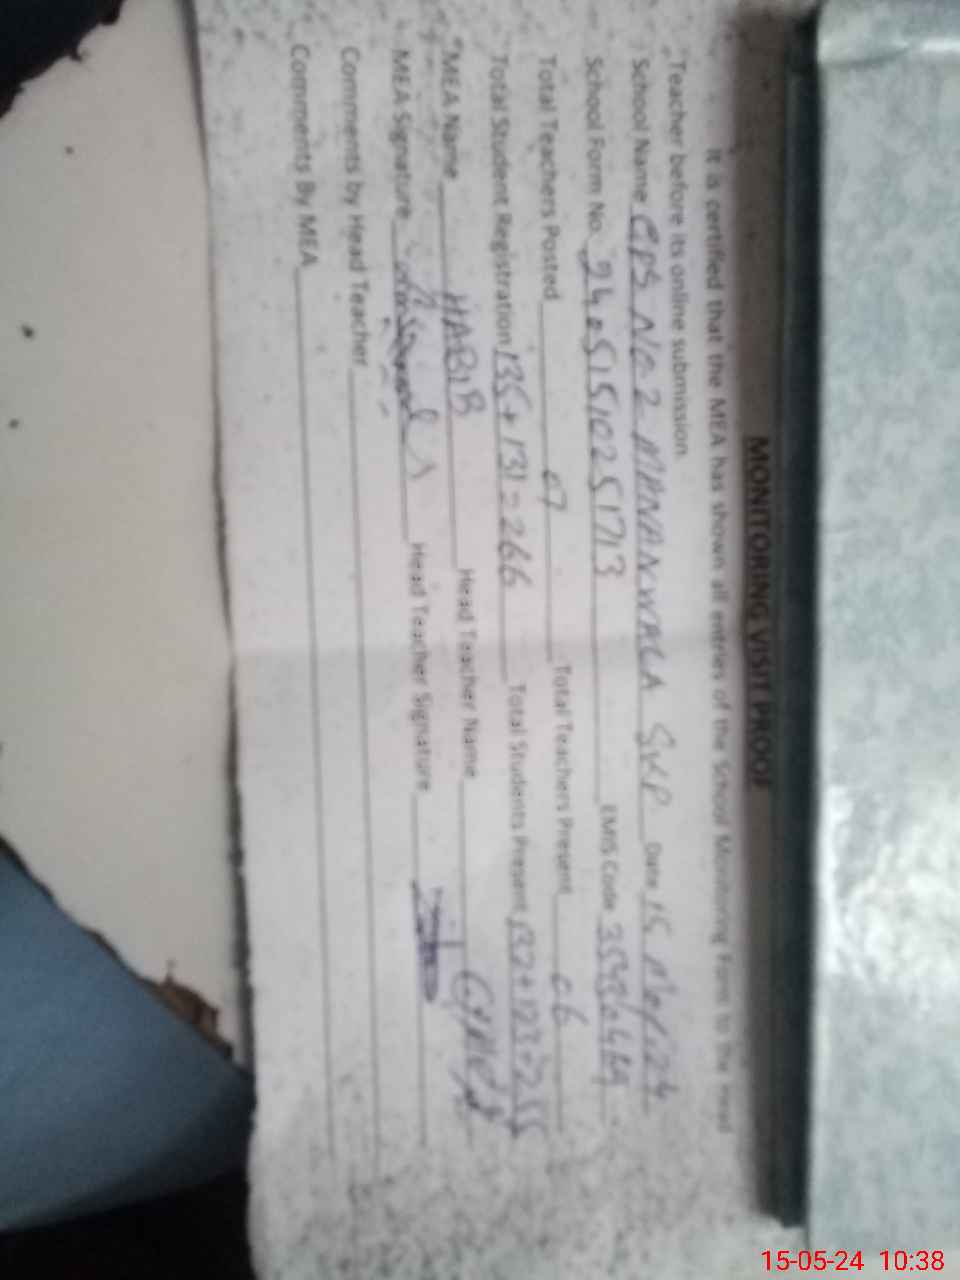 MONITORING VISIT PROOF
It is certified that the MEA has shown all entries of the School Monitoring Form to the Head
Teacher before its online submission.
School Name GPS No 2 MANANWALA SKP Date 15 May 24
School Form No. 24051510251713 EMIS Code
Total Teachers Posted 07 Total Teachers Present 06
Total Student Registration 135+131=266 Total Students Present 132+123=255
MEA Name HABIB Head Teacher Name
MEA Signature Head Teacher Signature
Comments by Head Teacher
Comments By MEA
15-05-24 10:38